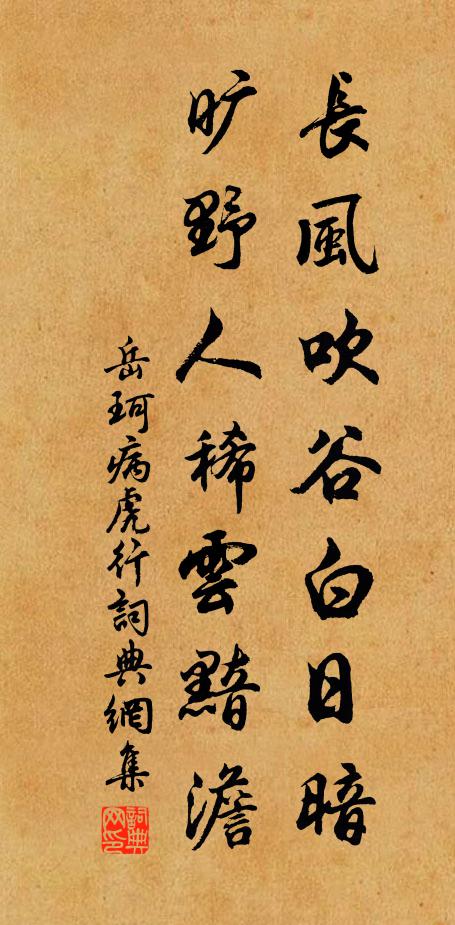 長風吹谷白日暗
旷野人稀雲黯澹
岳珂病虎行詞典網集
詞典网印